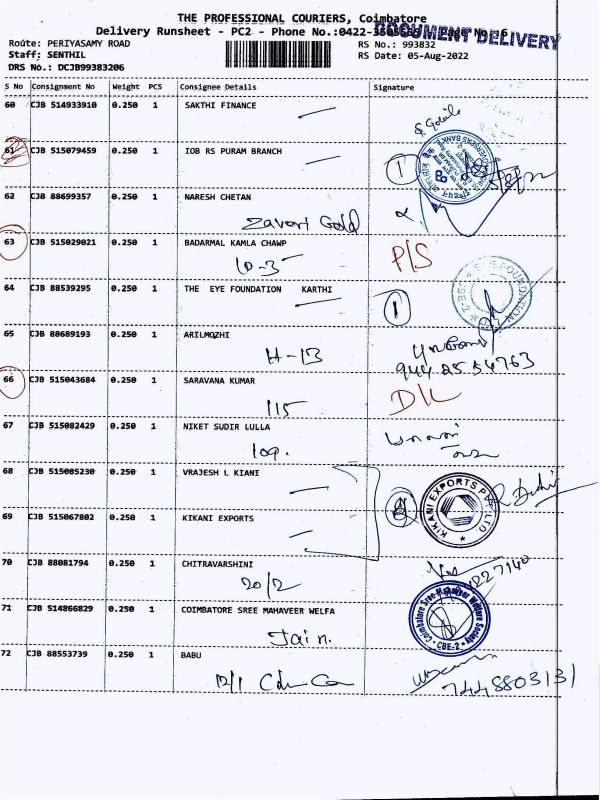 THE PROFESSIONAL COURIERS, Coimbatore
Delivery Runsheet - PC2 - Phone No.:0422-
DOCUMENT DELIVERY
Route: PERIYASAMY ROAD
RS No.: 993832
Staff: SENTHIL
RS Date: 05-Aug-2022
DRS No.: DCJB99383206
S No Consignment No Weight PCS Consignee Details Signature
60 CJB 514933910 0.250 1 SAKTHI FINANCE
61 CJB 515079459 0.250 1 IOB RS PURAM BRANCH 1
62 CJB 88699357 0.250 1 NARESH CHETAN
Zaveri Gold
63 CJB 515029021 0.250 1 BADARMAL KAMLA CHAWP P/S
10-3
64 CJB 88539295 0.250 1 THE EYE FOUNDATION KARTHI 1
65 CJB 88689193 0.250 1 ARILMOZHI
H-13
66 CJB 515043684 0.250 1 SARAVANA KUMAR D/L
115
67 CJB 515082429 0.250 1 NIKET SUDIR LULLA
109.
68 CJB 515085230 0.250 1 VRAJESH L KIANI
KIKANI EXPORTS PVT LTD
69 CJB 515067802 0.250 1 KIKANI EXPORTS
70 CJB 88081794 0.250 1 CHITRAVARSHINI
20/2
71 CJB 514866829 0.250 1 COIMBATORE SREE MAHAVEER WELFA
Coimbatore Sree Mahaveer Welfare Society
CBE-2
Jain.
72 CJB 88553739 0.250 1 BABU
7448803131